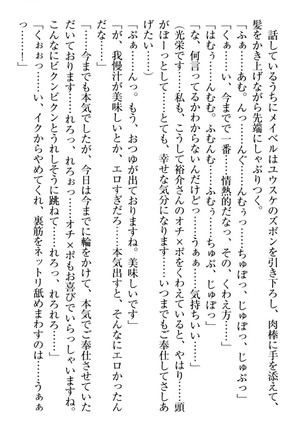 話しているうちにメイベルはユウスケのズボンを引き下ろし、肉棒に手を添えて、
髪をかき上げながら先端にしゃぶりつく。
「ふぁ……あむ。んっ……んぐ……んむぅっ……ちゅぽっ、じゅぽっ、じゅぷっ」
「くぁっ……い、今までで一番……情熱的だなっ、その、くわえ方……」
「はむぅ……んむむ。ふむむ……むむっ……ちゅぷ、じゅぽっ」
「な、何言ってるかわからないんだけどっ……うぁぁ……気持ちいい……」
（光栄です……私も、こうして裕介さんのオチ×ポをくわえていると、やはり……頭
がぼーっとして……とても、幸せな気分になります……いつまでもご奉仕してさしあ
げたい……）
「ぷぁっ……んっ。もう、おつゆが出ておりますね。美味しいです」
「が、我慢汁が美味しいとか、エロすぎだろ……本気出すと、そんなにエロかったん
だな……」
「……今までも本気でしたが、今日は今までに輪をかけて、本気でご奉仕させていた
だいております……れろっ、れろぉっ……オチ×ポもお喜びでいらっしゃいますね。
こんなにビクンビクンとうれしそうに跳ねて……れろっ……れろれろっ……」
「くぉぉっ……い、イクからやめてくれ、裏筋をネットリ舐めまわすのは……うぁぁ
っ……！」